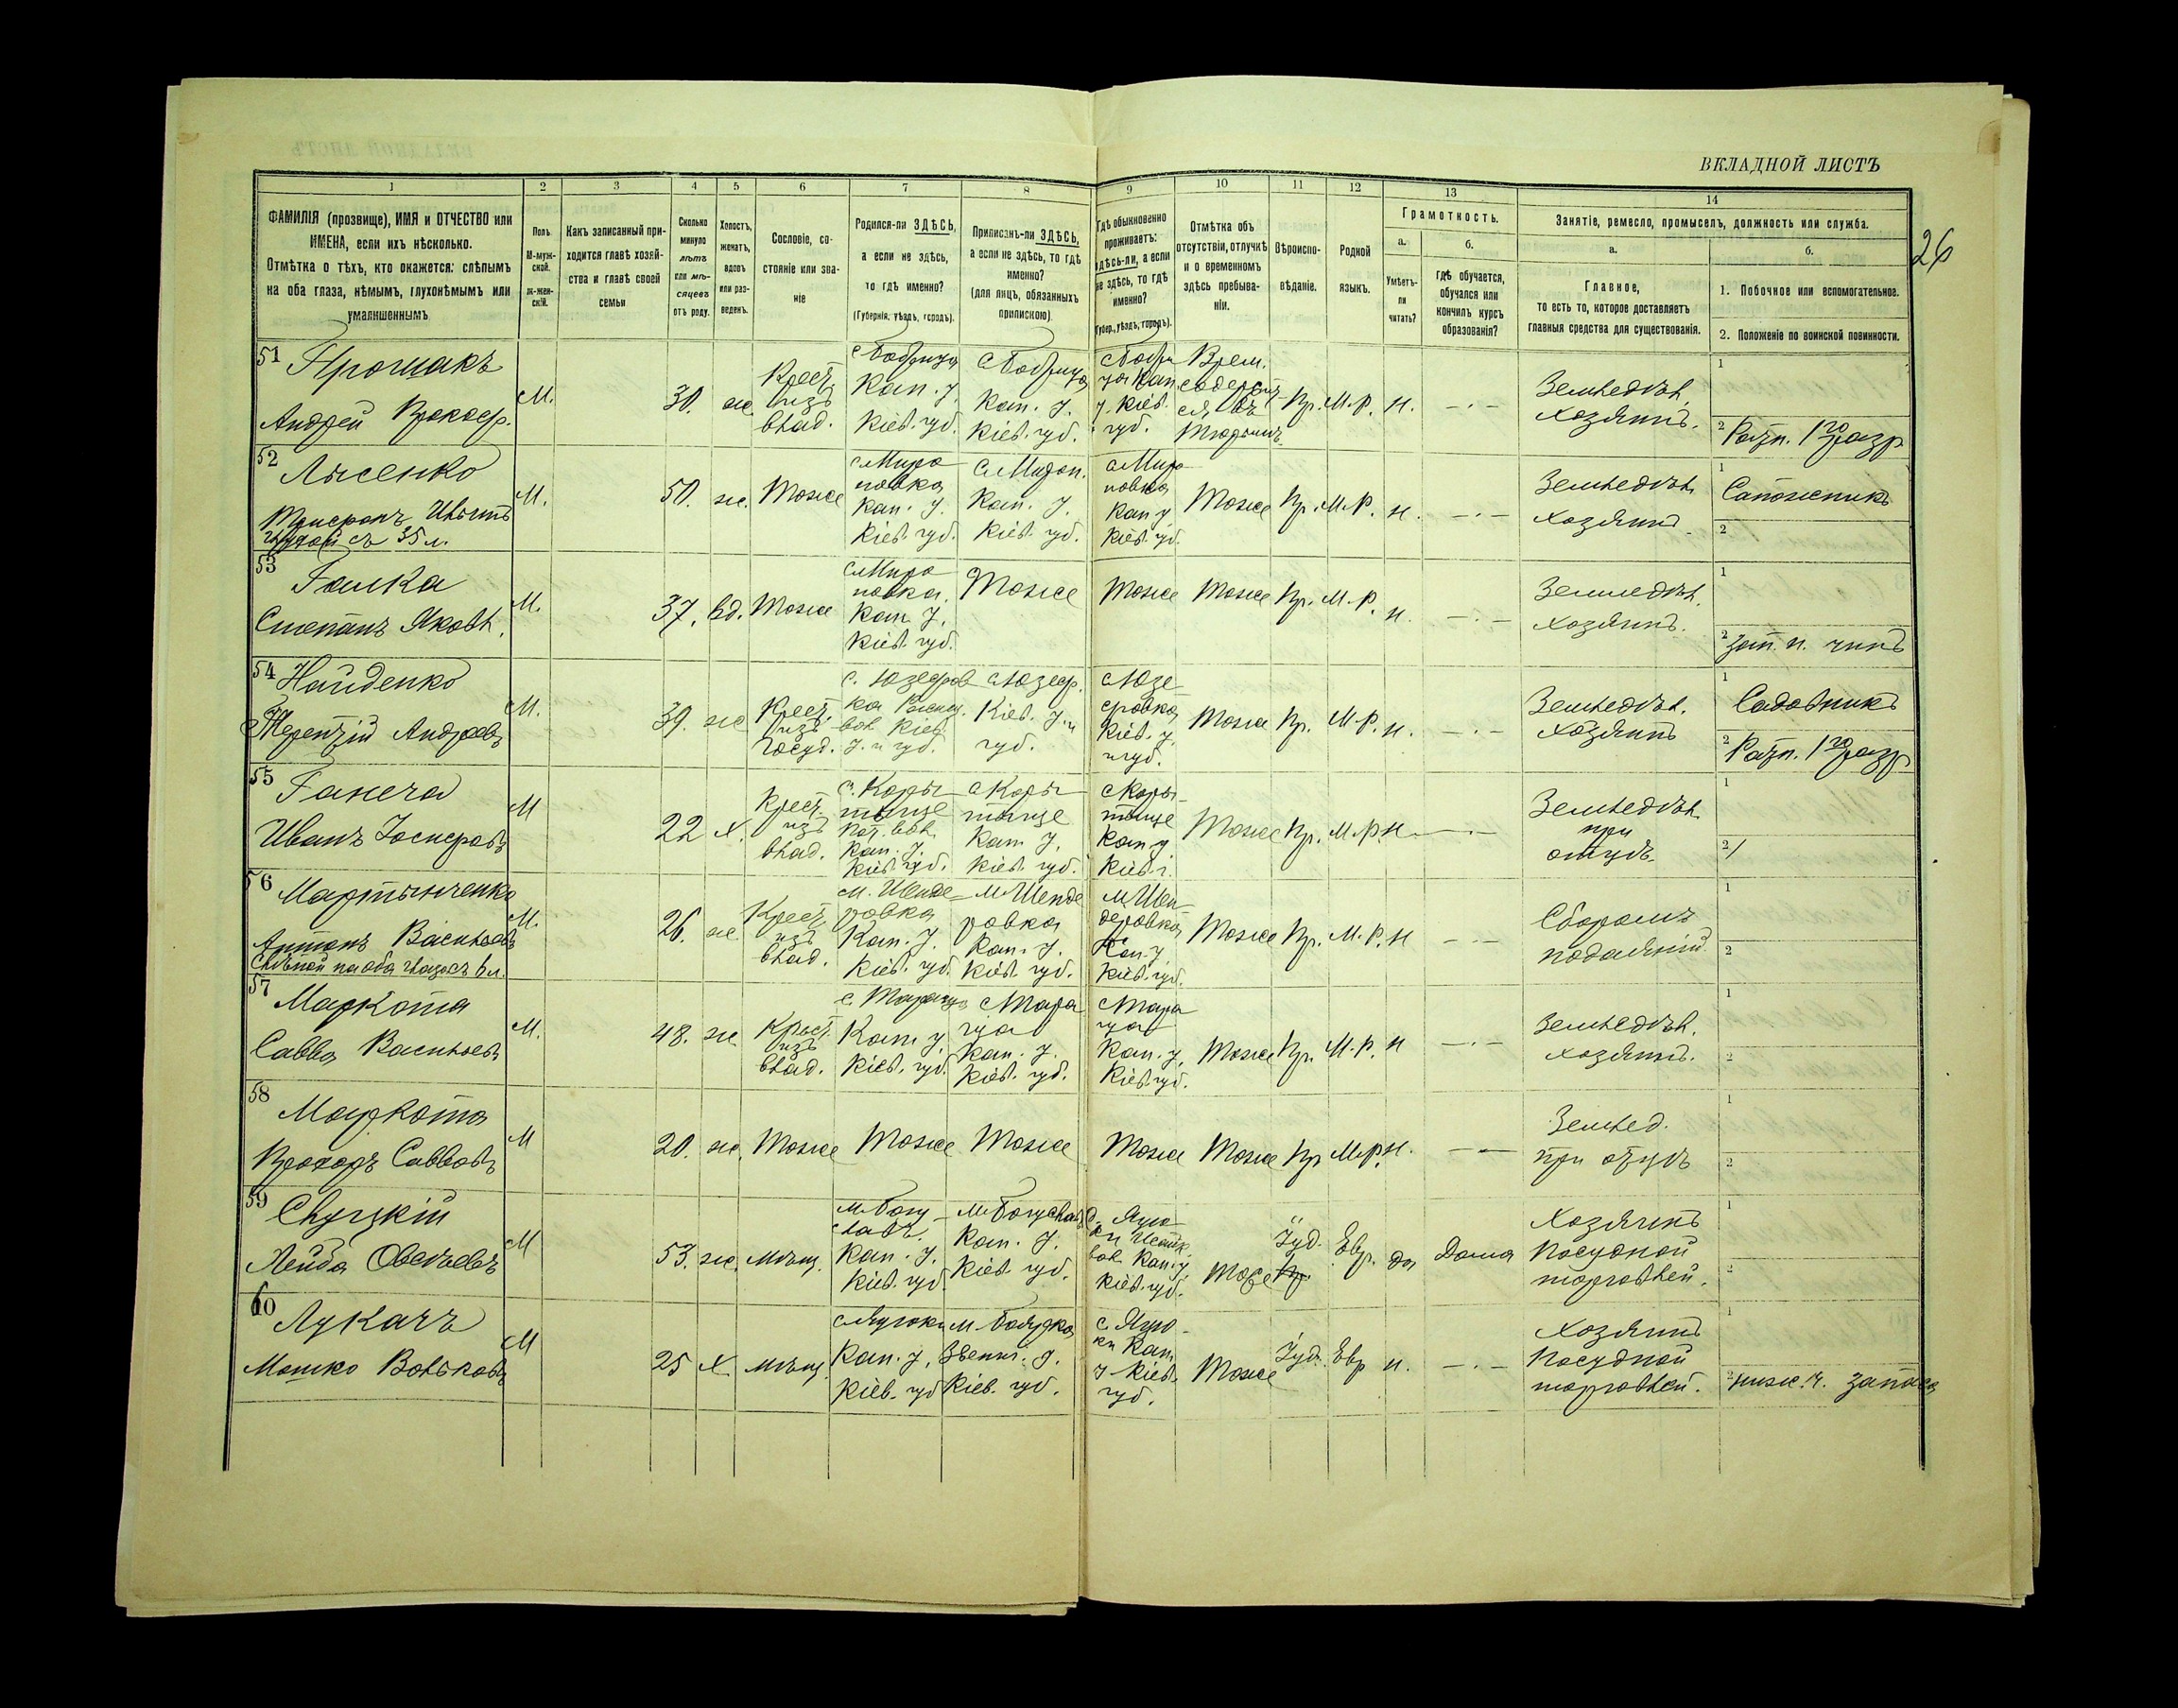 ВКЛАДНОЙ ЛИСТЪ
26
1 2 3 4 5 6 7 8 9 10 11 12 13 14
ФАМИЛІЯ (прозвище), ИМЯ и ОТЧЕСТВО или
ИМЕНА, если ихъ нѣсколько.
Отмѣтка о тѣхъ, кто окажется: слѣпымъ
на оба глаза, нѣмымъ, глухонѣмымъ или
умалишеннымъ
Полъ
М-муж-
ской.
ж-жен-
скій.
Какъ записанный при-
ходится главѣ хозяй-
ства и главѣ своей
семьи
Сколько
минуло
лѣтъ
или мѣ-
сяцевъ
отъ роду.
Холостъ,
женатъ,
вдовъ
или раз-
веденъ.
Сословіе, со-
стояніе или зва-
ніе
Родился-ли ЗДѢСЬ,
а если не здѣсь,
то гдѣ именно?
(Губернія, уѣздъ, городъ).
Приписанъ-ли ЗДѢСЬ,
а если не здѣсь, то гдѣ
именно?
(для лицъ, обязанныхъ
припискою)
Гдѣ обыкновенно
проживаетъ:
здѣсь-ли, а если
не здѣсь, то гдѣ
именно?
(Губер., уѣздъ, городъ).
Отмѣтка объ
отсутствіи, отлучкѣ
и о временномъ
здѣсь пребыва-
ніи.
Вѣроиспо-
вѣданіе.
Родной
языкъ.
Грамотность.
а.
Умѣетъ-
ли
читать?
б.
гдѣ обучается,
обучался или
кончилъ курсъ
образованія?
Занятіе, ремесло, промыселъ, должность или служба.
а.
Главное,
то есть то, которое доставляетъ
главныя средства для существованія.
б.
1. Побочное или вспомогательное.
2. Положеніе по воинской повинности.
51
Прошакъ
Андрей Прокоф.
М.
30.
ж.
Крест.
изъ
влад.
с Бобрица
Кан. у.
Кіев. губ.
с Бобрица
Кан. у.
Кіев. губ.
с Бобри
ца Кан
у. Кіев.
губ.
Врем.
содержит
ся въ
Тюрьмѣ
Пр.
М.Р.
н.
— . —
Земледѣл.
хозяинъ.
1
2 Ратн. 1го разр
52
Лысенко
глухой съ 35 л.
М.
50.
ж.
Тоже
с Миро
новка
Кан. у.
Кіев. губ.
с Мирон.
Кан. у.
Кіев. губ.
с Миро
новка
Кан у
Кіев. губ.
Тоже
Пр.
М.Р.
н.
— . —
Земледѣл.
хозяинъ
1 Сапожникъ
2
53
Галка
Степанъ Яковл.
М.
37.
вд.
Тоже
с Миро
новка.
Кан у.
Кіев. губ.
Тоже
Тоже
Тоже
Пр.
М.Р.
н.
— . —
Земледѣл.
хозяинъ.
1
2 зап. н. чинъ
54
Найденко
Терентій Андреевъ
М.
39.
ж
Крест.
изъ
госуд.
с. Юзефов
ка Васил.
вол. Кіев.
у. и губ.
с Юзеф.
Кіев. у. и
губ.
с Юзе
фовка
Кіев. у.
и губ.
Тоже
Пр.
М.Р.
н.
— . —
Земледѣл.
хозяинъ
1 Садовникъ
2 Ратн. 1го разр
55
Ганеча
Иванъ Іосифовъ
М
22
х.
Крест.
изъ
влад.
с. Коры
тище
вол.
Кан. у.
Кіев. губ.
с Коры
тище
Кан у.
Кіев. губ.
с Коры-
тище
Кан у
Кіев. г.
Тоже
Пр.
М.Р.
н
— . —
Земледѣл.
при
отцѣ.
1
2/
56
Мартынченко
Антонъ Васильевъ
Слѣпой на оба глаза съ 6 л.
М.
26.
ж.
Крест.
изъ
влад.
м. Шенде-
ровка
Кан. у.
Кіев. губ.
м Шенде
ровка
Кан. у.
Кіев. губ.
м Шен-
деровка
Кан. у.
Кіев. губ.
Тоже
Пр.
М.Р.
н
— . —
Сборомъ
подаяній
1
2
57
Маркота
Савва Васильевъ
М.
48.
ж
Крест.
изъ
влад.
с. Тараща
Кан у.
Кіев. губ.
с Тара
ща
Кан. у.
Кіев. губ.
с Тара
ща
Кан. у.
Кіев губ.
Тоже
Пр.
М.Р.
н
— . —
Земледѣл.
хозяинъ.
1
2
58
Маркота
Прохоръ Саввовъ
М
20.
ж.
Тоже
Тоже
Тоже
Тоже
Тоже
Пр
М.Р.
н.
— —
Землед.
при отцѣ
1
2
59
Слуцкій
Лейба Овсѣевъ
М
53.
ж.
мѣщ.
м Богу-
славъ.
Кан. у.
Кіев. губ.
м Богуславъ
Кан. у.
Кіев. губ.
вол. Кан. у.
Кіев. губ.
Тоже
Іуд.
Евр.
да
Дома
Хозяинъ
Посудной
торговлей.
1
2
60
Лукачъ
Мошко Вольковъ
М
25
х
мѣщ.
Кан. у.
Кіев. губ
м. Боярка
Звениг. у.
Кіев. губ.
Кан
у Кіев.
губ.
Тоже
Іуд.
Евр
н.
— . —
Хозяинъ
Посудной
торговлей.
1
2 ниж. ч. запаса